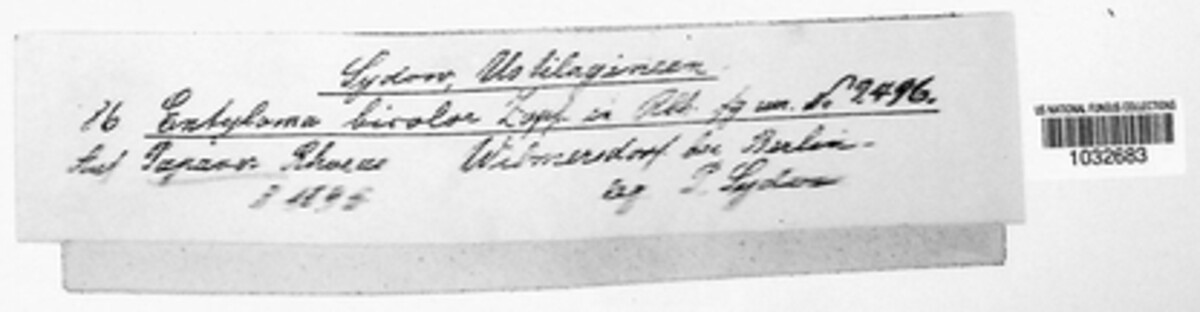 Sydow, Ustilagineen.
86 Entyloma bicolor Zopf in Rbh. fg eur. No 2496.
Auf Papaver Rhoeas Wilmersdorf bei Berlin.
leg P. Sydow
US NATIONAL FUNGUS COLLECTIONS
1032683